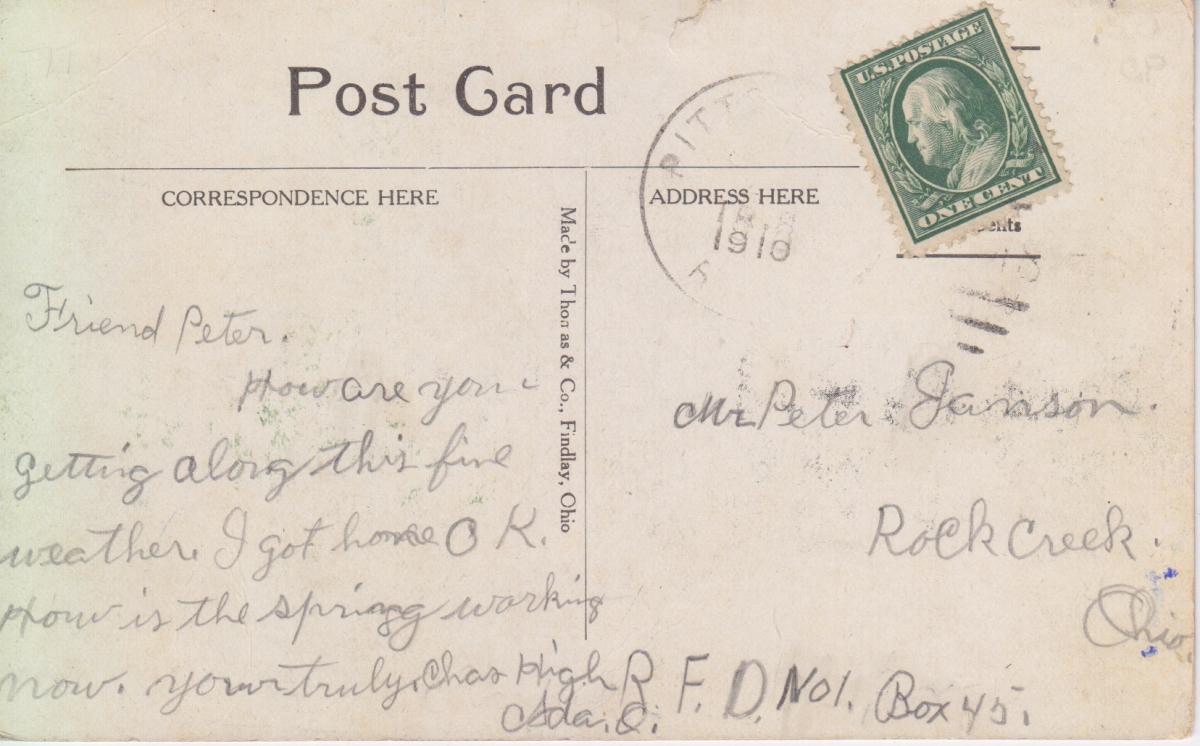 Post Card
U.S. POSTAGE
ONE CENT
PITTS
1910
CORRESPONDENCE HERE
ADDRESS HERE
Made by Thomas & Co., Findlay, Ohio
Friend Peter.
How are you
getting along this fine
weather. I got home O K.
How is the spring working
now. yours truly. Chas High
Ada. O.
R. F. D. No 1. Box 45.
Mr Peter Janson.
Rock Creek.
Ohio.